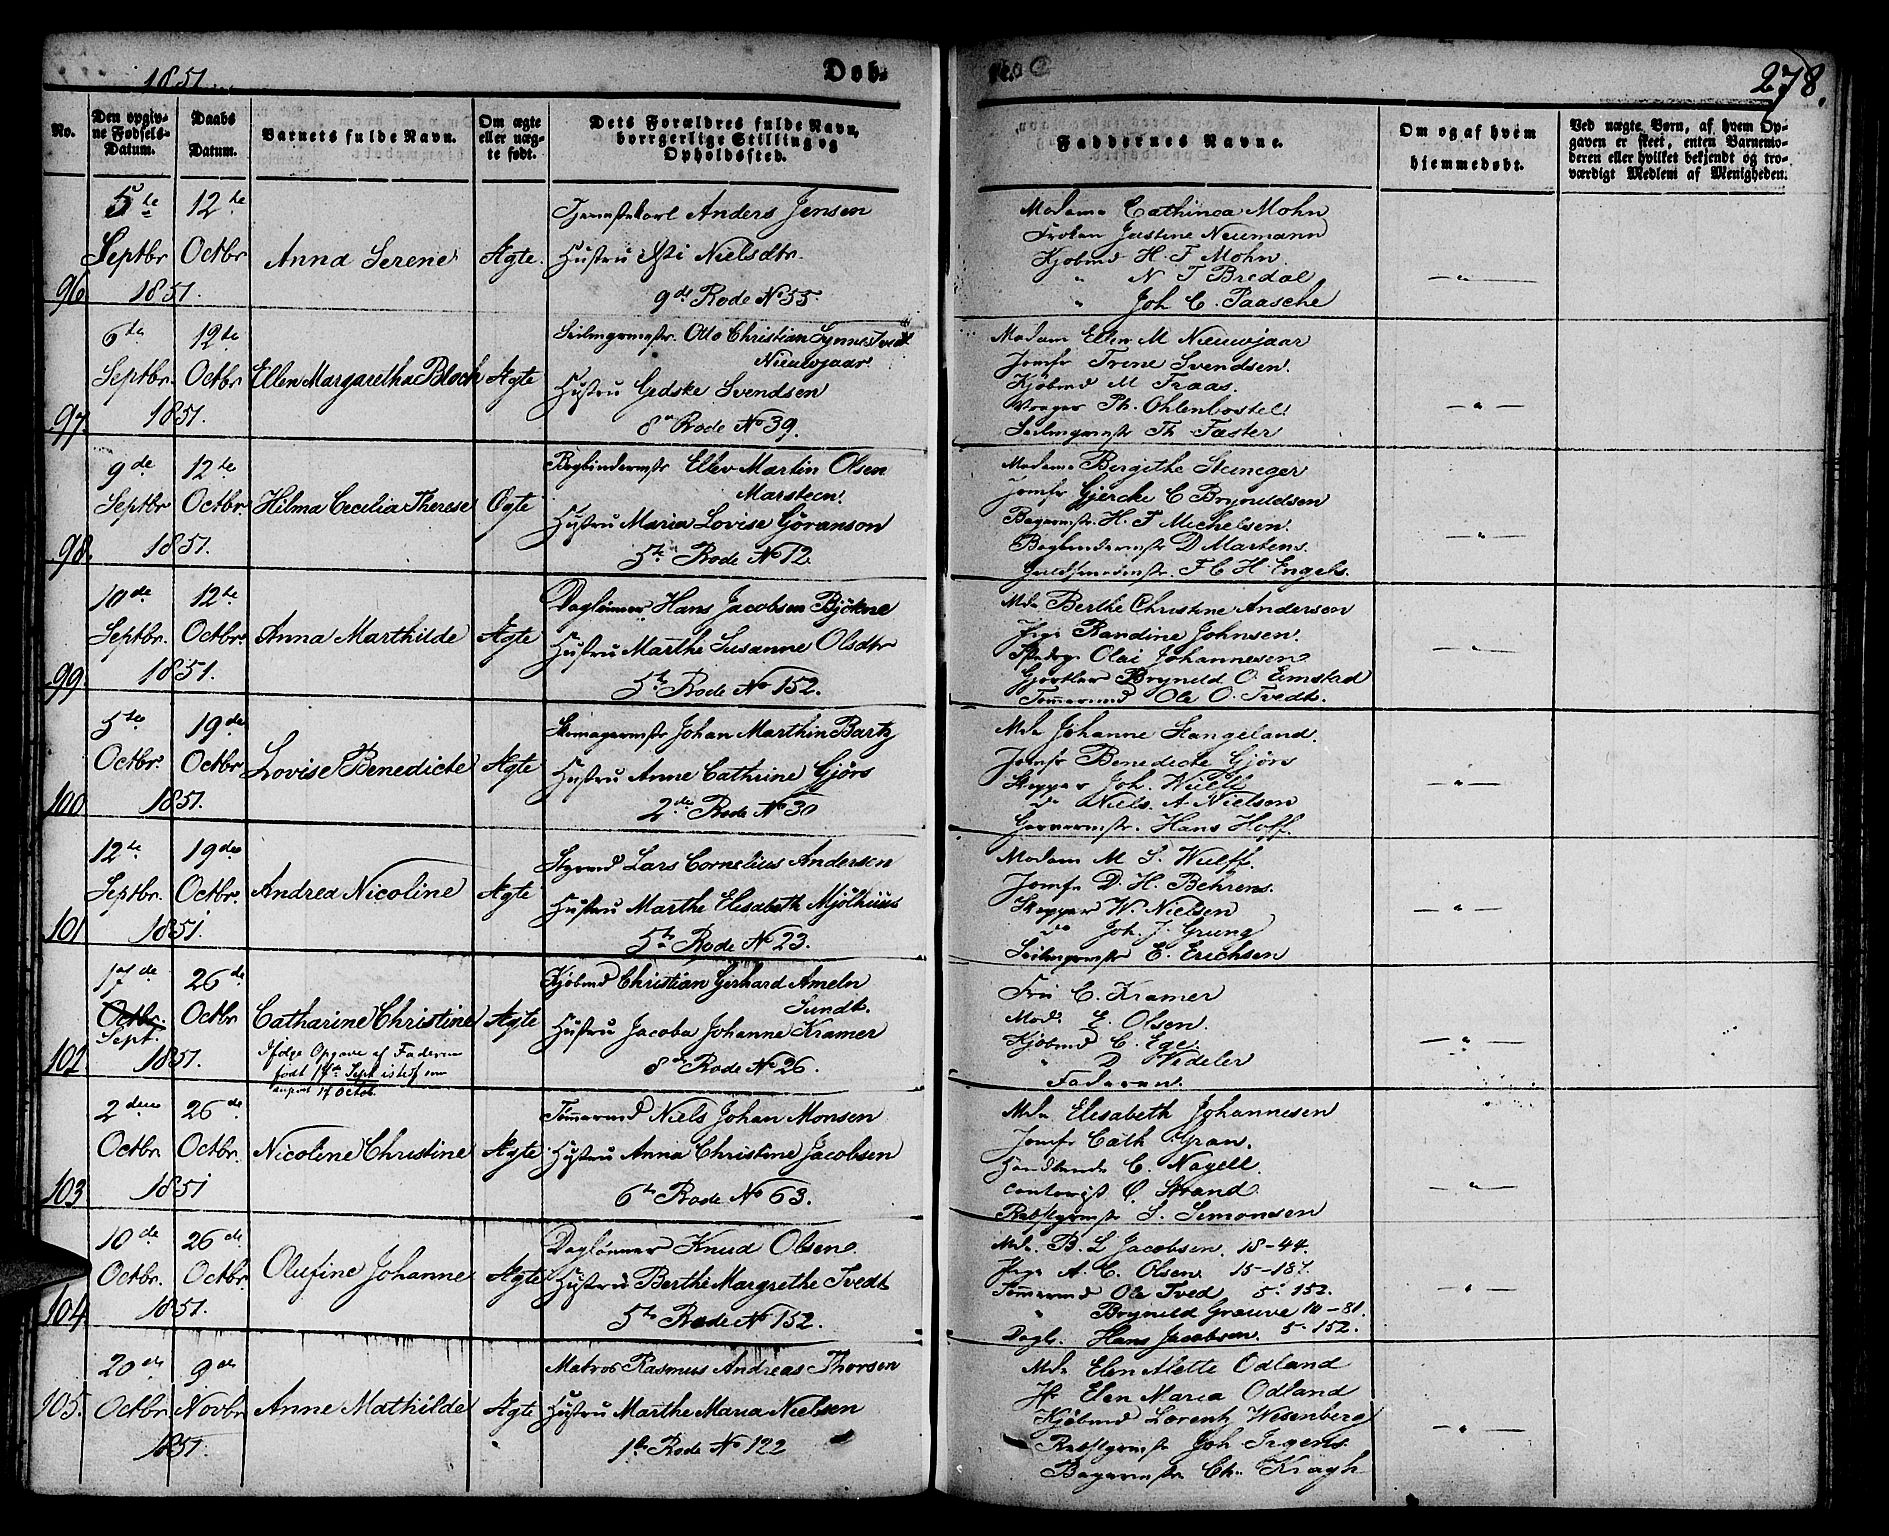 1851.
Døb-
te.
278.
No.
Den opgiv-
ne Fødsels-
Datum.
Daabs
Datum.
Barnets fulde Navn.
Om ægte
eller uæg-
te født.
Dets Forældres fulde Navn,
borrgerlige Stilling og
Opholdssted.
Faddernes Navne.
Om og af hvem
hjemmedøbt.
Ved uægte Børn, af hvem Op-
gaven er skeet, enten Barnemo-
deren eller hvilket bekjendt og tro-
værdigt Medlem af Menigheden.
96
5te Septbr 1851.
12te Octbr
Anna Serene
Ægte.
Anders Jensen
Hustru Nielsdtr.
9de Rode No 55.
Madame Cathinca Mohn
Frøken Justine Neumann
Kjøbmd H. F. Mohn
" N T Bredal
" Joh C. Paasche
— " —
97.
6te Septbr. 1851.
12te Octbr
Ellen Margaretha Bloch
Ægte
Seilmagermstr. Otto Christian Tvedt
Nieuwejaar
Hustru Gedske Svendsen
8de Rode No 39.
Madam Elen M Nieuwjaar
Jomfr Trine Svendsen.
Kjøbmd M Fraas.
Vrager Th. Ohlenbostel
Seilmagermstr Th Faster
— " —
98.
9de Septbr 1851.
12te Octbr.
Hilma Cecilia Therese
Ægte
Bogbindermstr Ellev Martin Olsen
Marsteen.
Hustru Maria Lovise Göranson
5te Rode No 12.
Madame Bergithe Steneger
Jomfr Gjercke C Brynildsen
Bagermstr. H. F Michelsen.
Bogbindermstr D Martens.
Guldsmedmstr. F C H Engels.
— " —
99.
10de Septbr. 1851.
12te Octbr.
Anna Marthilde
Ægte
Dagleiner Hans Jacobsen Björkne
Hustru Marthe Susanne Olsdtr
5te Rode No 152.
Mde Berthe Christine Andersen
Pige Randine Johnsen.
Olai Johannesen
Gjørtler Brynild O. Eimstad
Tømmermd Ole O. Tvedt.
— " —
100
5te Octbr. 1851.
19de Octbr
Lovise Benedicte
Ægte
Skomagermstr Johan Marthin Bartz
Hustru Anne Cathrine Gjörs
2de Rode No 30
Mde Johanne Hangeland.
Jomfr Benedicte Gjörs
Skipper Joh. Wulff
do Niels A. Nielsen
Garvermstr. Hans Hoff.
— " —
101
12te Septbr. 1851.
19de Octbr.
Andrea Nicoline
Ægte
Styrmd Lars Cornelius Andersen
Hustru Marthe Elisabeth Mjölhuus
5te Rode No 23.
Madam M S. Wulff.
Jomfr D. H. Behrens.
Skipper W. Nielsen
do Joh. J. Grung
Seilmagermstr E. Erichsen
— " —
102
17de Octbr. Sept. 1851.
26de Octbr
Catharine Christine
Ifølge Opgave af Faderen
født 17de Sept istedf. som
anført 17 Octob.
Ægte
Kjøbmd Christian Gerhard Ameln
Sundt.
Hustru Jacoba Johanne Kramer
8de Rode No 26.
Fru C. Kramer
Mad. E. Olsen.
Kjøbmd C. Ege
" D. Vedeler
Faderen.
— " —
103
2den Octbr 1851
26de Octbr.
Nicoline Christine
Ægte
Tømmermd Niels Johan Monsen
Hustru Anna Christine Jacobsen
6te Rode No 63.
Mde Elisabeth Johannesen
Jomfr Cath Gran.
Handlende C. Nagell.
Contorist O. Strand
Rebslgrmstr S. Simonsen
— " —
104
10de Octbr. 1851.
26de Octbr
Olufine Johanne
Ægte
Daglønner Knud Olsen.
Hustru Berthe Margrethe Tvedt
5te Rode No 152.
Mde. B. L Jacobsen. 18-44.
Pige A. C. Olsen. 15-187.
Tømmermd Ole Tved 5-152.
" Brynild Grauve 10-81.
Dagl. Hans Jacobsen. 5-152.
— " —
105.
20de Octbr 1851.
9de Novbr
Anne Mathilde
Ægte
Matros Rasmus Andreas Thorsen
Hustru Marthe Maria Nielsen
1te Rode No 122
Mde Elen Alette Odland
Elen Maria Odland
Kjøbmd Lorentz Wesenberg
Rebslgrmstr Joh Irgens.
Bagermstr Ch. Kragh
— " —